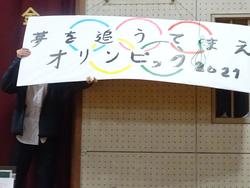 夢を追うてまえ
オリンピック2021